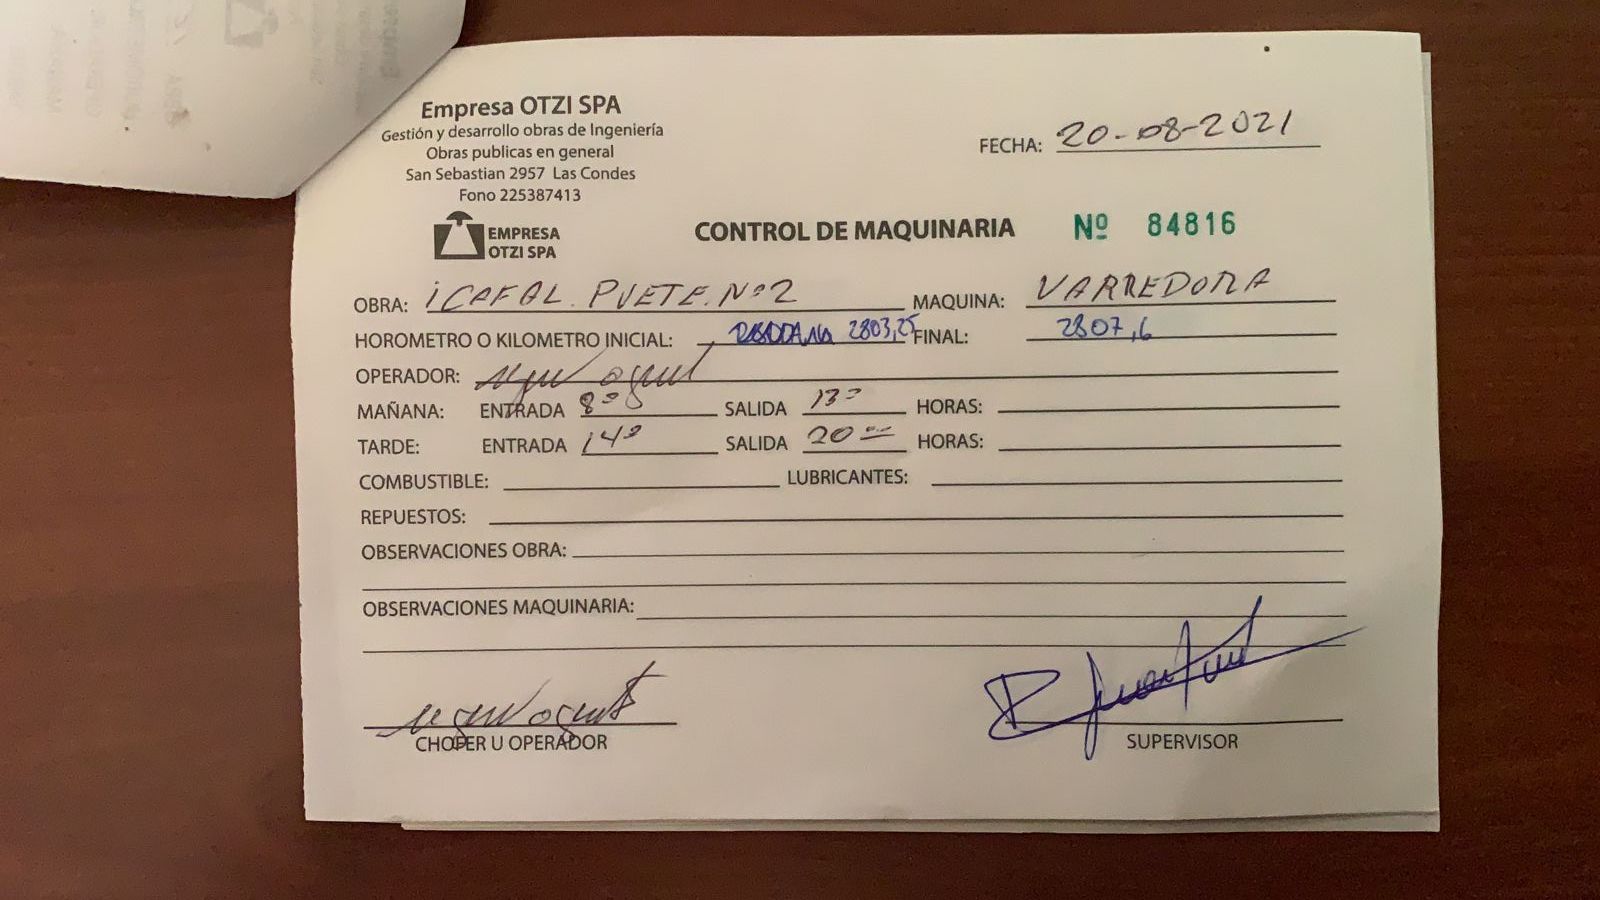 Empresa OTZI SPA
Gestión y desarrollo obras de Ingeniería
Obras publicas en general
San Sebastian 2957 Las Condes
Fono 225387413
FECHA: 20-08-2021
EMPRESA
OTZI SPA
CONTROL DE MAQUINARIA Nº 84816
OBRA: iCAFAL. PUETE. Nº2 MAQUINA: VARREDORA
HOROMETRO O KILOMETRO INICIAL: 2803,25 FINAL: 2807,6
OPERADOR:
MAÑANA: ENTRADA 8⁰⁰ SALIDA 13⁰ HORAS:
TARDE: ENTRADA 14⁰ SALIDA 20⁰⁰ HORAS:
COMBUSTIBLE: LUBRICANTES:
REPUESTOS:
OBSERVACIONES OBRA:
OBSERVACIONES MAQUINARIA:
CHOFER U OPERADOR
SUPERVISOR